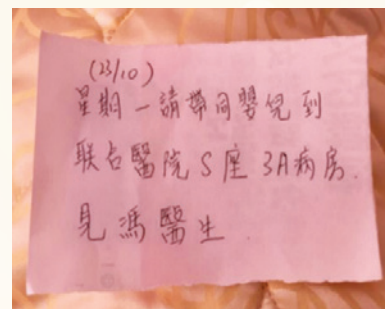 (23/10)
星期一請帶同嬰兒到
联合醫院S座3A病房.
見馮醫生.